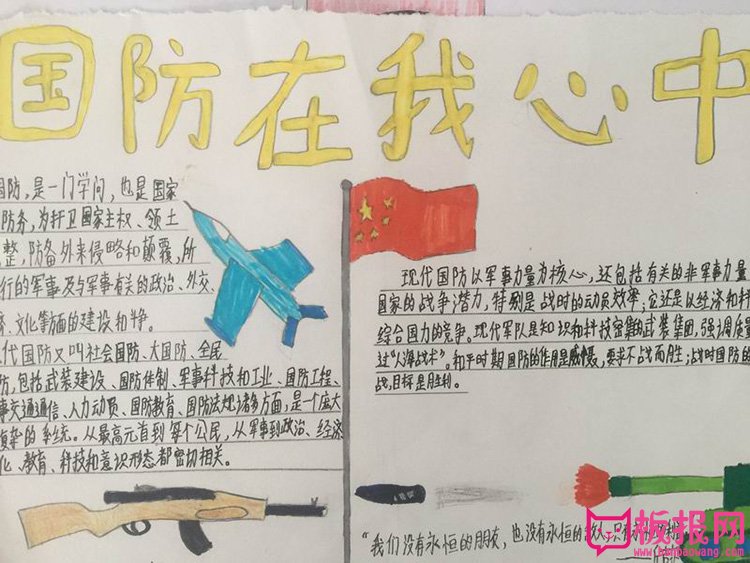 国防在我心中
国防，是一门学问，也是国家
防务，为扞卫国家主权、领土
整，防备外来侵略和颠覆，所
行的军事及与军事有关的政治、外交、
文化等方面的建设和斗争。
代国防又叫社会国防、大国防、全民
防，包括武装建设、国防体制、军事科技和工业、国防工程、
事交通通信、人力动员、国防教育、国防法规诸多方面，是个庞大
复杂的系统。从最高元首到每个公民，从军事到政治、经济
化、教育、科技和意识形态都密切相关。
现代国防以军事力量为核心，还包括有关的非军事力量
国家的战争潜力，特别是战时的动员效率；它还是以经济和科
综合国力的竞争。现代军队是知识和科技密集的武装集团，强调质量
过“人海战术”。和平时期国防的作用是威慑，要求不战而胜；战时国防的
战，目标是胜利。
“我们没有永恒的朋友，也没有永恒的敌人，只有
板报网
www.banbaowang.com